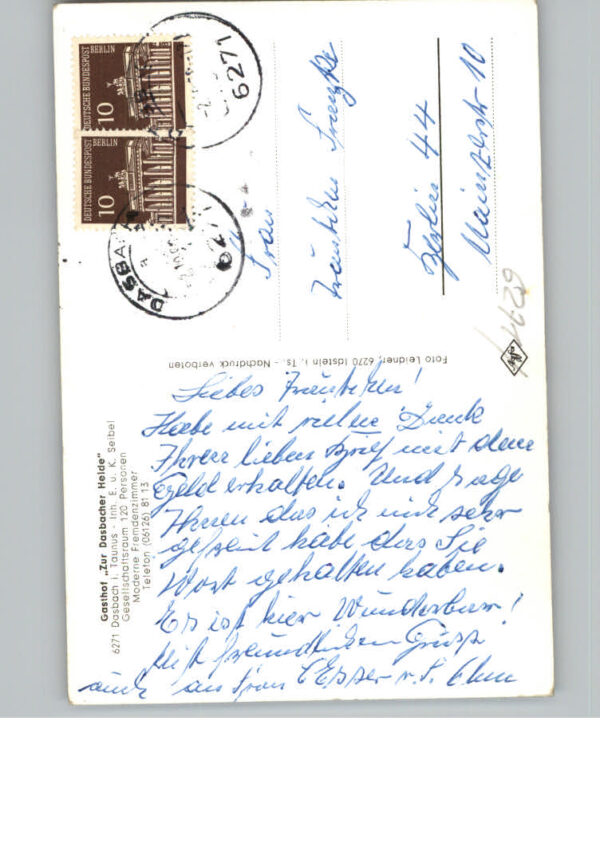 Liebes Fräulein!
Habe mit vielen Dank
Ihren lieben Brief mit dem
Geld erhalten. Und sage
Ihnen das ich mich sehr
gefreut habe das Sie
Wort gehalten haben.
Es ist hier Wunderbar!
Mit freundlichen Grüss
auch an Frau
Frau
Fräulein
Berlin 44
Mainzerstr 10
Gasthof „Zur Dasbacher Heide"
6271 Dasbach i. Taunus - Inh. E. u. K. Seibel
Gesellschaftsraum 120 Personen
Moderne Fremdenzimmer
Telefon (06126) 81 13
Foto Leidner, 6270 Idstein i. Ts. - Nachdruck verboten
DEUTSCHE BUNDESPOST
BERLIN
10
DEUTSCHE BUNDESPOST
BERLIN
10
6271
DASBACH
6271